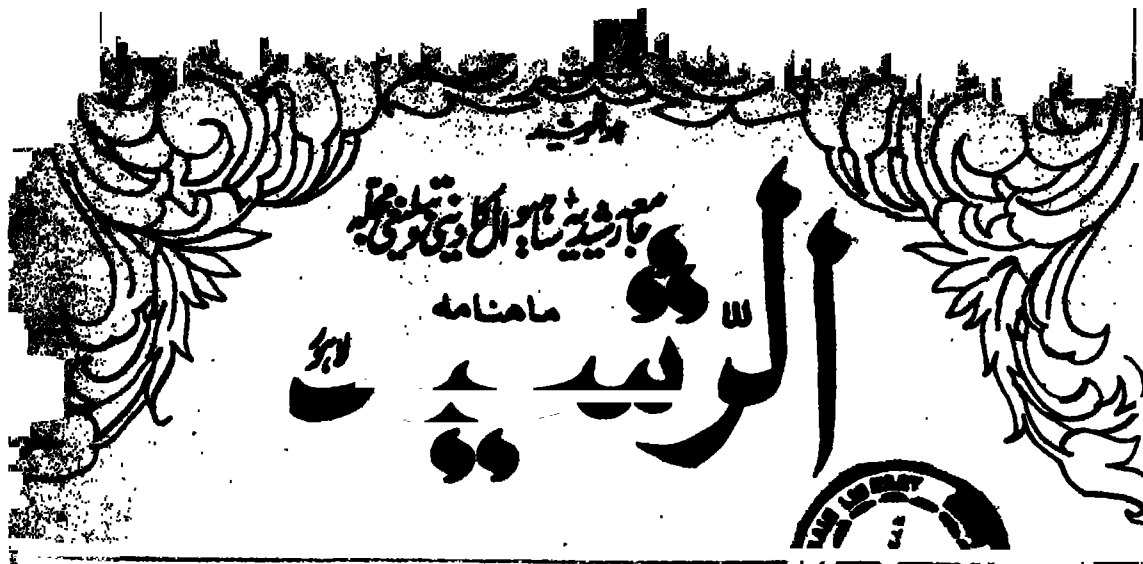 جامعہ رشیدیہ ساہیوال کا دینی تبلیغی مجلہ
ماہنامہ
الرّشید
لاہور
LIBRARY